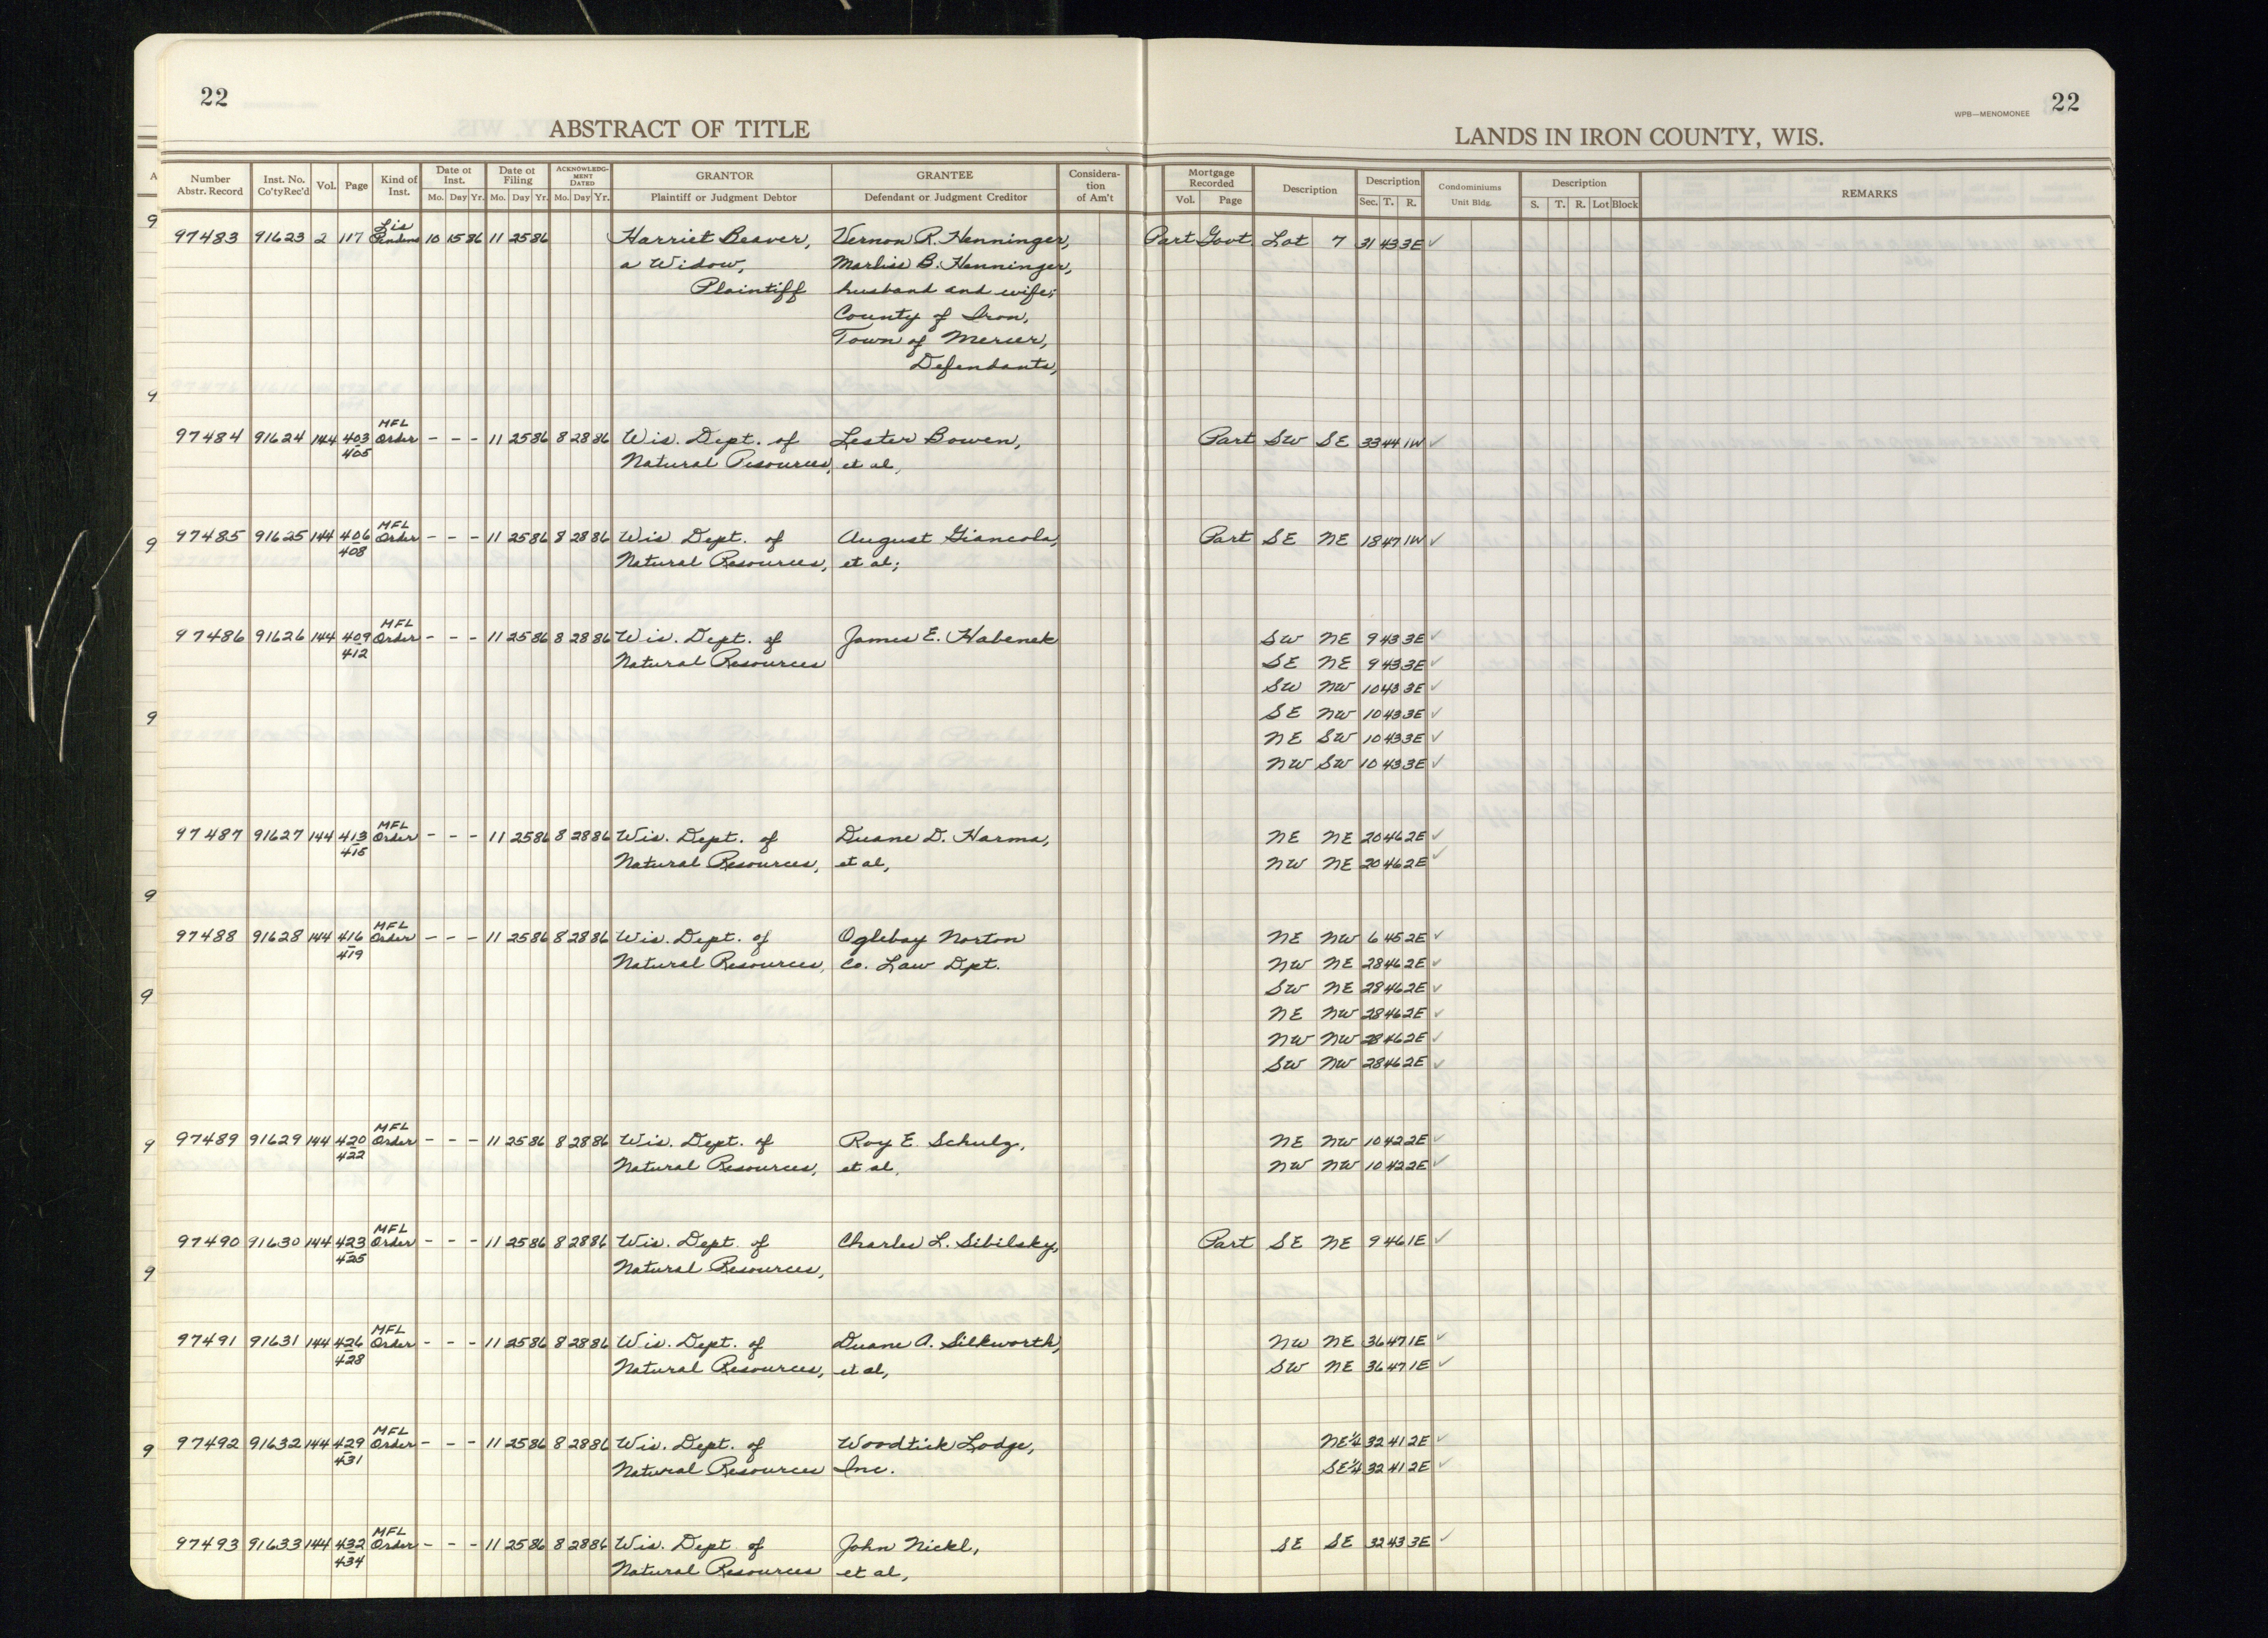 22
22
WPB—MENOMONEE
ABSTRACT OF TITLE
LANDS IN IRON COUNTY, WIS.
A Number Abstr. Record Inst. No. Co'tyRec'd Vol. Page Kind of Inst. Date of Inst. Mo. Day Yr. Date of Filing Mo. Day Yr. ACKNOWLEDG-MENT DATED Mo. Day Yr. GRANTOR Plaintiff or Judgment Debtor GRANTEE Defendant or Judgment Creditor Considera-tion of Am't Mortgage Recorded Vol. Page Description Description Sec. T. R. Condominiums Unit Bldg. Description S. T. R. Lot Block REMARKS
9
97483 91623 2 117 Lis Pendens 10 15 86 11 25 86 Harriet Beaver, Vernon R. Henninger, Part Govt Lot 7 31 43 3E ✓
a Widow, Marliss B. Henninger,
Plaintiff husband and wife;
County of Iron,
Town of Mercer,
Defendants,
9
97484 91624 144 403 405 MFL Order - - - 11 25 86 8 28 86 Wis. Dept. of Lester Bowen, Part SW SE 33 44 1W ✓
Natural Resources, et al,
9
97485 91625 144 406 408 MFL Order - - - 11 25 86 8 28 86 Wis Dept. of August Giancola, Part SE NE 18 47 1W ✓
Natural Resources, et al;
97486 91626 144 409 412 MFL Order - - - 11 25 86 8 28 86 Wis. Dept. of James E. Habenek SW NE 9 43 3E ✓
Natural Resources SE NE 9 43 3E ✓
SW NW 10 43 3E ✓
9 SE NW 10 43 3E ✓
NE SW 10 43 3E ✓
NW SW 10 43 3E ✓
97487 91627 144 413 415 MFL Order - - - 11 25 86 8 28 86 Wis. Dept. of Duane D. Harma, NE NE 20 46 2E ✓
Natural Resources, et al, NW NE 20 46 2E ✓
9
97488 91628 144 416 419 MFL Order - - - 11 25 86 8 28 86 Wis. Dept. of Oglebay Norton NE NW 6 45 2E ✓
Natural Resources, Co. Law Dpt. NW NE 28 46 2E ✓
9 SW NE 28 46 2E ✓
NE NW 28 46 2E ✓
NW NW 28 46 2E ✓
SW NW 28 46 2E ✓
9 97489 91629 144 420 422 MFL Order - - - 11 25 86 8 28 86 Wis. Dept. of Roy E. Schulz, NE NW 10 42 2E ✓
Natural Resources, et al, NW NW 10 42 2E ✓
97490 91630 144 423 425 MFL Order - - - 11 25 86 8 28 86 Wis. Dept. of Charles L. Sibilsky, Part SE NE 9 46 1E ✓
9 Natural Resources,
97491 91631 144 426 428 MFL Order - - - 11 25 86 8 28 86 Wis. Dept. of Duane A. Silkworth, NW NE 36 47 1E ✓
Natural Resources, et al, SW NE 36 47 1E ✓
9 97492 91632 144 429 431 MFL Order - - - 11 25 86 8 28 86 Wis. Dept. of Woodtick Lodge, NE¼ 32 41 2E ✓
Natural Resources Inc. SE¼ 32 41 2E ✓
97493 91633 144 432 434 MFL Order - - - 11 25 86 8 28 86 Wis. Dept. of John Nickl, SE SE 32 43 3E ✓
Natural Resources et al,